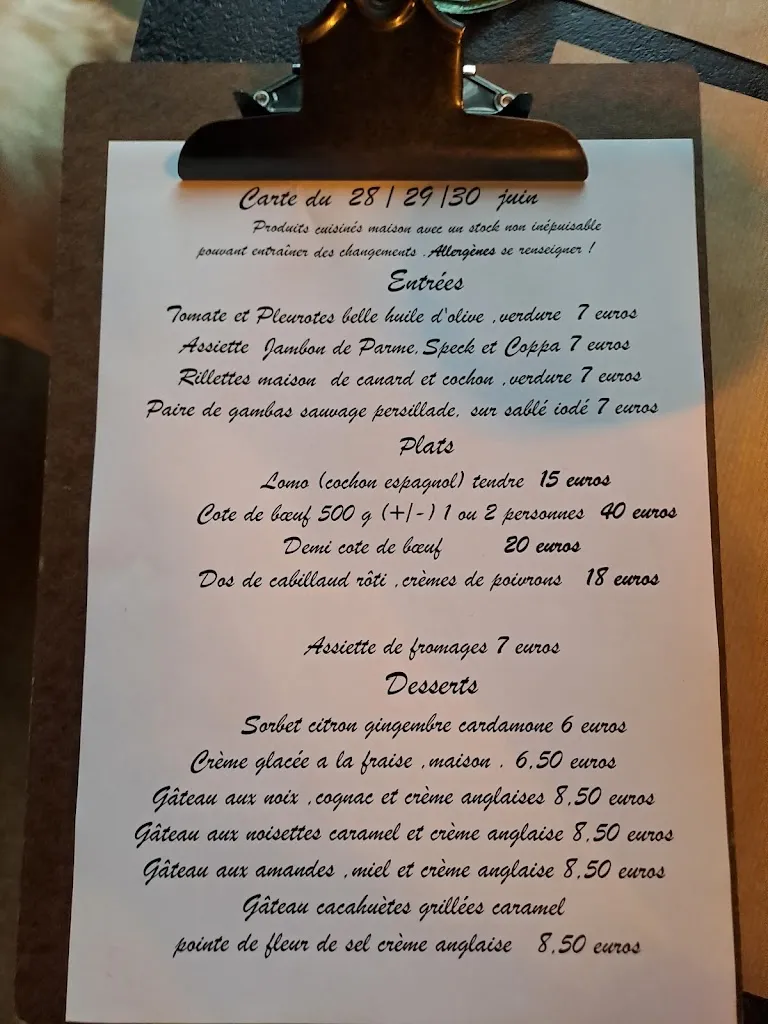 Carte du 28 / 29 /30 juin
Produits cuisinés maison avec un stock non inépuisable
pouvant entraîner des changements . Allergènes se renseigner !
Entrées
Tomate et Pleurotes belle huile d'olive ,verdure 7 euros
Assiette Jambon de Parme, Speck et Coppa 7 euros
Rillettes maison de canard et cochon ,verdure 7 euros
Paire de gambas sauvage persillade, sur sablé iodé 7 euros
Plats
Lomo (cochon espagnol) tendre 15 euros
Cote de bœuf 500 g (+/-) 1 ou 2 personnes 40 euros
Demi cote de bœuf 20 euros
Dos de cabillaud rôti ,crèmes de poivrons 18 euros
Assiette de fromages 7 euros
Desserts
Sorbet citron gingembre cardamone 6 euros
Crème glacée a la fraise ,maison . 6,50 euros
Gâteau aux noix ,cognac et crème anglaises 8,50 euros
Gâteau aux noisettes caramel et crème anglaise 8,50 euros
Gâteau aux amandes ,miel et crème anglaise 8,50 euros
Gâteau cacahuètes grillées caramel
pointe de fleur de sel crème anglaise 8,50 euros